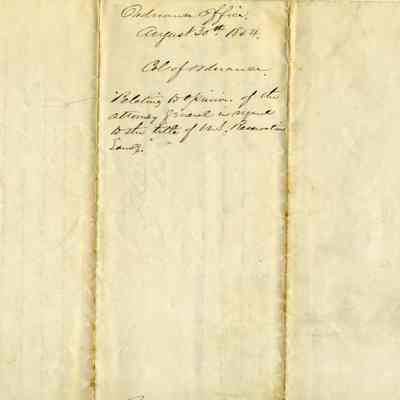 Ordnance Office.
August 30th 1854.
Col. of Ordnance.
Relating to opinion of the
attorney General in regard
to the title of U.S. Reservation
Lands."